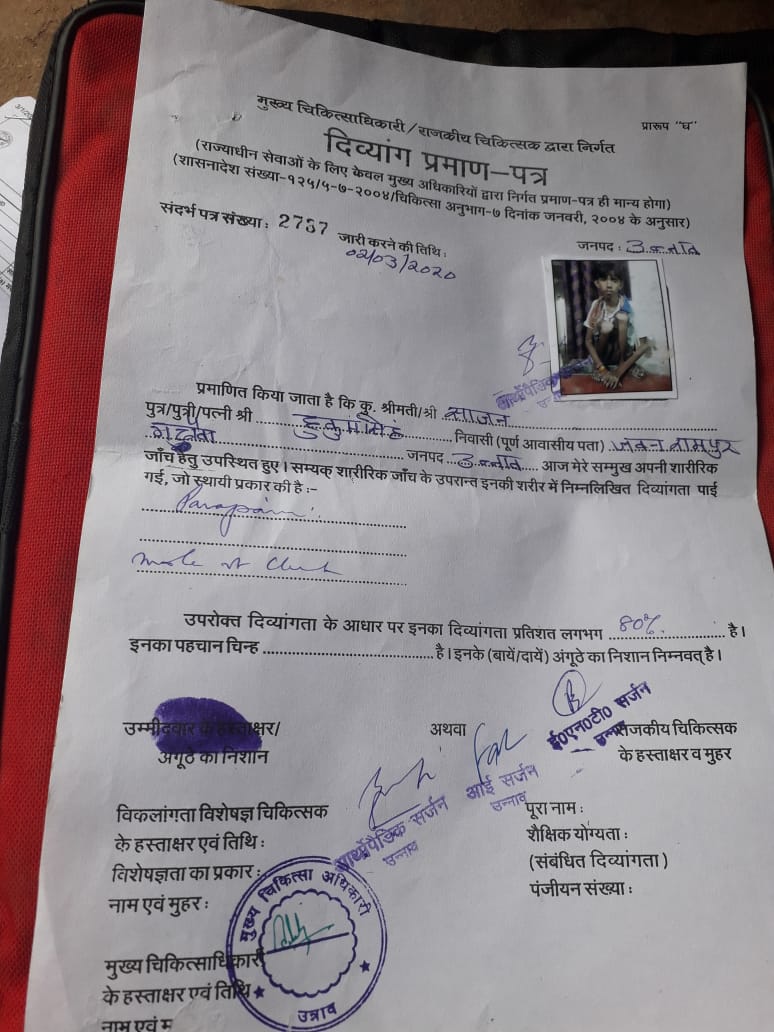 मुख्य चिकित्साधिकारी/राजकीय चिकित्सक द्वारा निर्गत
प्रारूप "घ"
दिव्यांग प्रमाण-पत्र
(राज्याधीन सेवाओं के लिए केवल मुख्य अधिकारियों द्वारा निर्गत प्रमाण-पत्र ही मान्य होगा)
(शासनादेश संख्या-१२५/५-७-२००४/चिकित्सा अनुभाग-७ दिनांक जनवरी, २००४ के अनुसार)
संदर्भ पत्र संख्या: 2737 जारी करने की तिथि: जनपद: उन्नाव
02/03/2020
आर्थोपैडिक सर्जन
उन्नाव
प्रमाणित किया जाता है कि कु. श्रीमती/श्री साजन
पुत्र/पुत्री/पत्नी श्री हुकुम सिंह निवासी (पूर्ण आवासीय पता)
जनपद उन्नाव आज मेरे सम्मुख अपनी शारीरिक
जाँच हेतु उपस्थित हुए। सम्यक् शारीरिक जाँच के उपरान्त इनकी शरीर में निम्नलिखित दिव्यांगता पाई
गई, जो स्थायी प्रकार की है:-
mole at
उपरोक्त दिव्यांगता के आधार पर इनका दिव्यांगता प्रतिशत लगभग 80% है।
इनका पहचान चिन्ह है। इनके (बायें/दायें) अंगूठे का निशान निम्नवत् है।
उम्मीदवार के हस्ताक्षर/ अथवा राजकीय चिकित्सक
अंगूठे का निशान के हस्ताक्षर व मुहर
ई०एन०टी० सर्जन
उन्नाव
आई सर्जन
उन्नाव
आर्थोपैडिक सर्जन
उन्नाव
विकलांगता विशेषज्ञ चिकित्सक
के हस्ताक्षर एवं तिथि:
विशेषज्ञता का प्रकार:
नाम एवं मुहर:
पूरा नाम:
शैक्षिक योग्यता:
(संबंधित दिव्यांगता)
पंजीयन संख्या:
मुख्य चिकित्सा अधिकारी
उन्नाव
मुख्य चिकित्साधिकारी
के हस्ताक्षर एवं तिथि
नाम एवं म